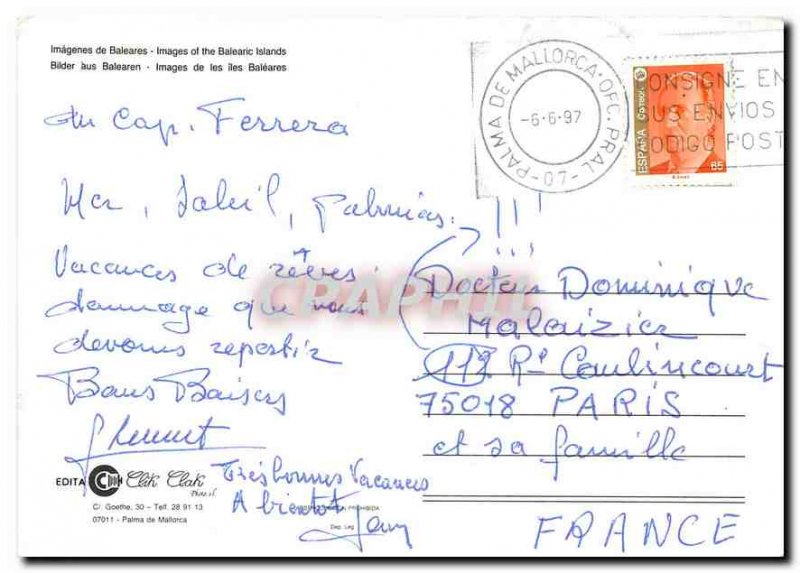 Imágenes de Baleares - Images of the Balearic Islands
Bilder aus Balearen - Images de les îles Baléares
PALMA DE MALLORCA - OFC. PRAL. - 07 -
-6-6-97
CONSIGNE EN
SUS ENVIOS
CODIGO POST
ESPAÑA Correos
65
au Cap. Ferrera
Mer, Soleil, Palmiers.
!!!
Vacances de rêves
dommage que nous
devons repartir
Bons Baisers
Docteur Dominique
Malaizier
112 R. Caulincourt
75018 PARIS
et sa famille
FRANCE
Très bonnes Vacances
A bientot
CPAPHIL
EDITA Clik Clak
C/. Goethe, 30 - Telf. 28 91 13
07011 - Palma de Mallorca
PROHIBIDA
Dep. Leg.